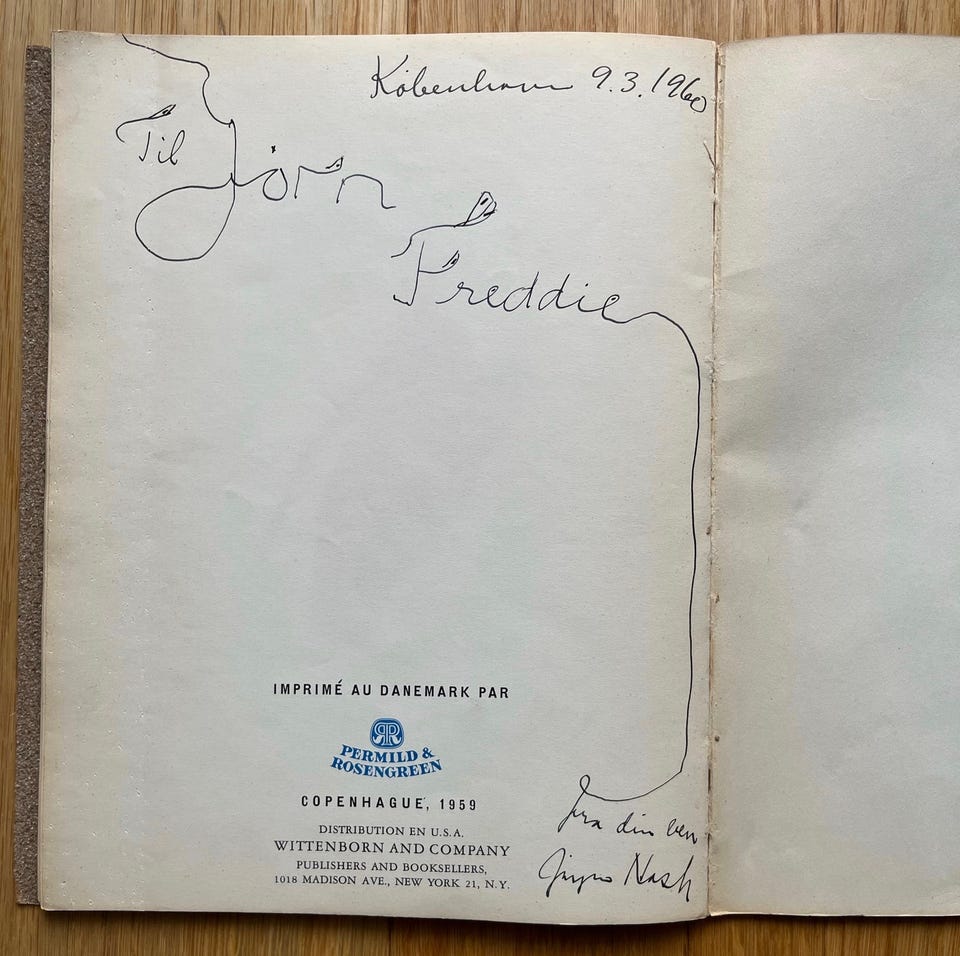 København 9.3.1960
Til
Jörn
Freddie
IMPRIMÉ AU DANEMARK PAR
PERMILD &
ROSENGREEN
COPENHAGUE, 1959
DISTRIBUTION EN U.S.A.
WITTENBORN AND COMPANY
PUBLISHERS AND BOOKSELLERS,
1018 MADISON AVE., NEW YORK 21, N.Y.
fra din ven
Jørgen Nash